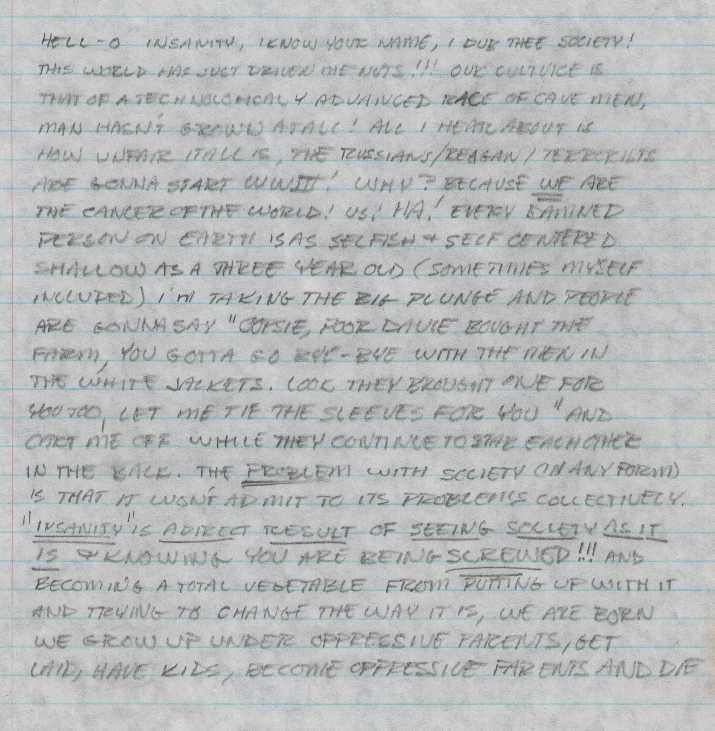 HELL-O INSANITY, I KNOW YOUR NAME, I DUB THEE SOCIETY!
THIS WORLD HAS JUST DRIVEN ME NUTS!!! OUR CULTURE IS
THAT OF A TECHNOLOGICALLY ADVANCED RACE OF CAVE MEN,
MAN HASN'T GROWN AT ALL! ALL I HEAR ABOUT IS
HOW UNFAIR IT ALL IS, THE RUSSIANS/REAGAN/TERRORISTS
ARE GONNA START WWIII! WHY? BECAUSE WE ARE
THE CANCER OF THE WORLD! US! HA! EVERY DAMNED
PERSON ON EARTH IS AS SELFISH + SELF CENTERED
SHALLOW AS A THREE YEAR OLD (SOMETIMES MYSELF
INCLUDED) I'M TAKING THE BIG PLUNGE AND PEOPLE
ARE GONNA SAY "OOPSIE, POOR DAVIE BOUGHT THE
FARM, YOU GOTTA GO BYE-BYE WITH THE MEN IN
THE WHITE JACKETS. LOOK THEY BROUGHT ONE FOR
YOU TOO, LET ME TIE THE SLEEVES FOR YOU" AND
CART ME OFF WHILE THEY CONTINUE TO STAB EACHOTHER
IN THE BACK. THE PROBLEM WITH SOCIETY (IN ANY FORM)
IS THAT IT WON'T ADMIT TO ITS PROBLEMS COLLECTIVELY.
"INSANITY" IS A DIRECT RESULT OF SEEING SOCIETY AS IT
IS & KNOWING YOU ARE BEING SCREWED!!! AND
BECOMING A TOTAL VEGETABLE FROM PUTTING UP WITH IT
AND TRYING TO CHANGE THE WAY IT IS, WE ARE BORN
WE GROW UP UNDER OPPRESSIVE PARENTS, GET
LAID, HAVE KIDS, BECOME OPPRESSIVE PARENTS AND DIE